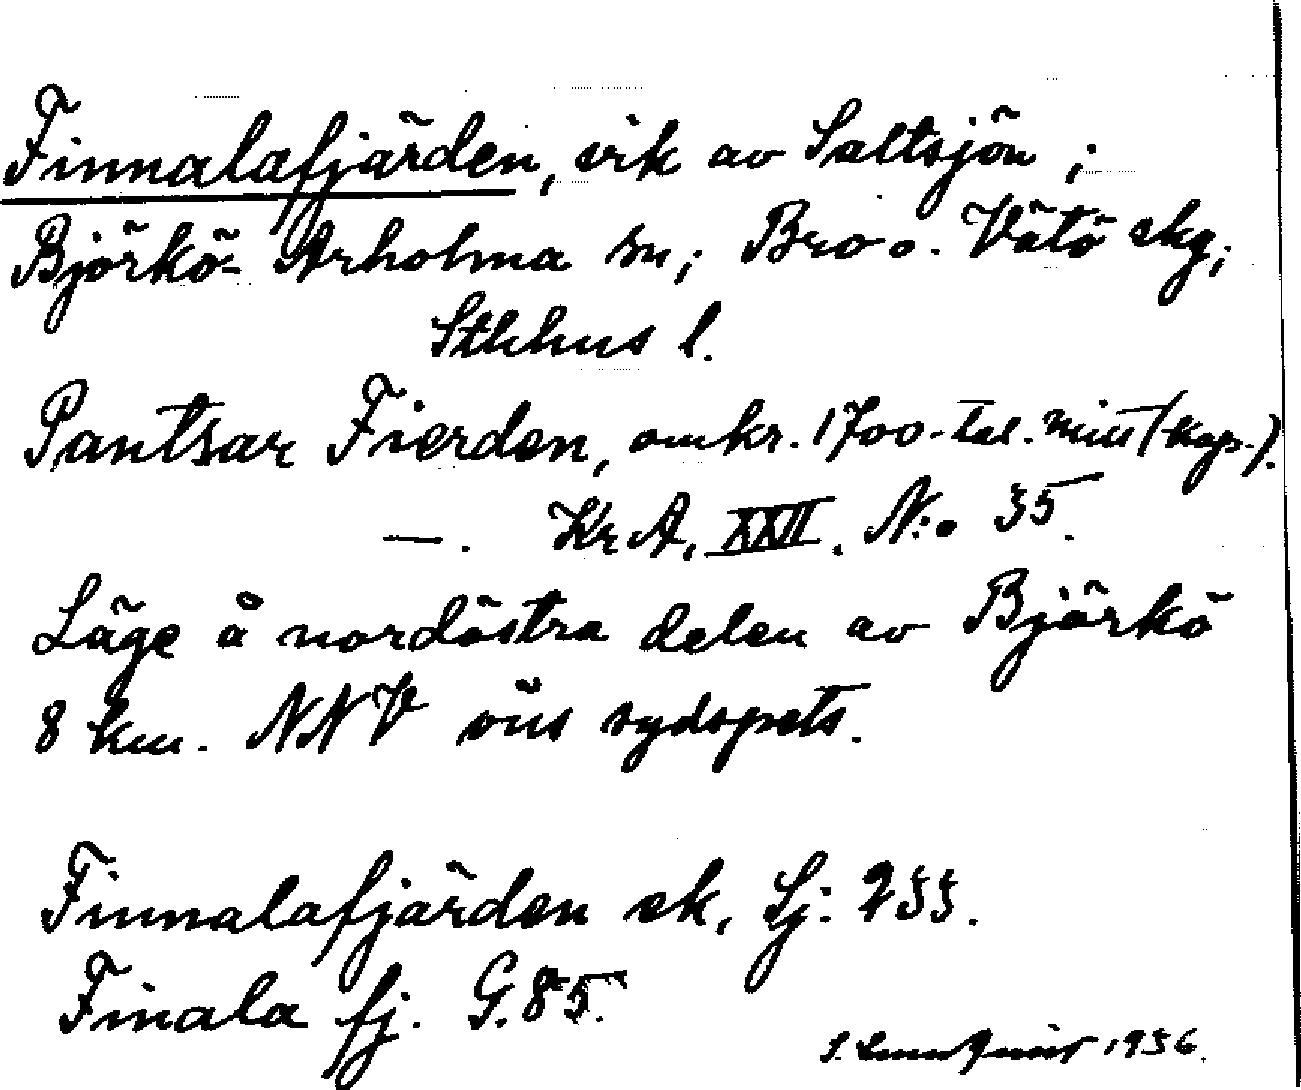 Finnalafjärden, vik av Saltsjön;
Björkö-Arholma sn; Bro o. Vätö skg;
Sthlms l.
Pantsar Fierden, omkr. 1700-tal. mitt (kop.).
—. KrA, XXII. N:o 35.
Läge å nordöstra delen av Björkö
8 km. NNV öns sydspets.
Finnalafjärden ek. Sj: 233.
Finala fj. G. 85.
1936.